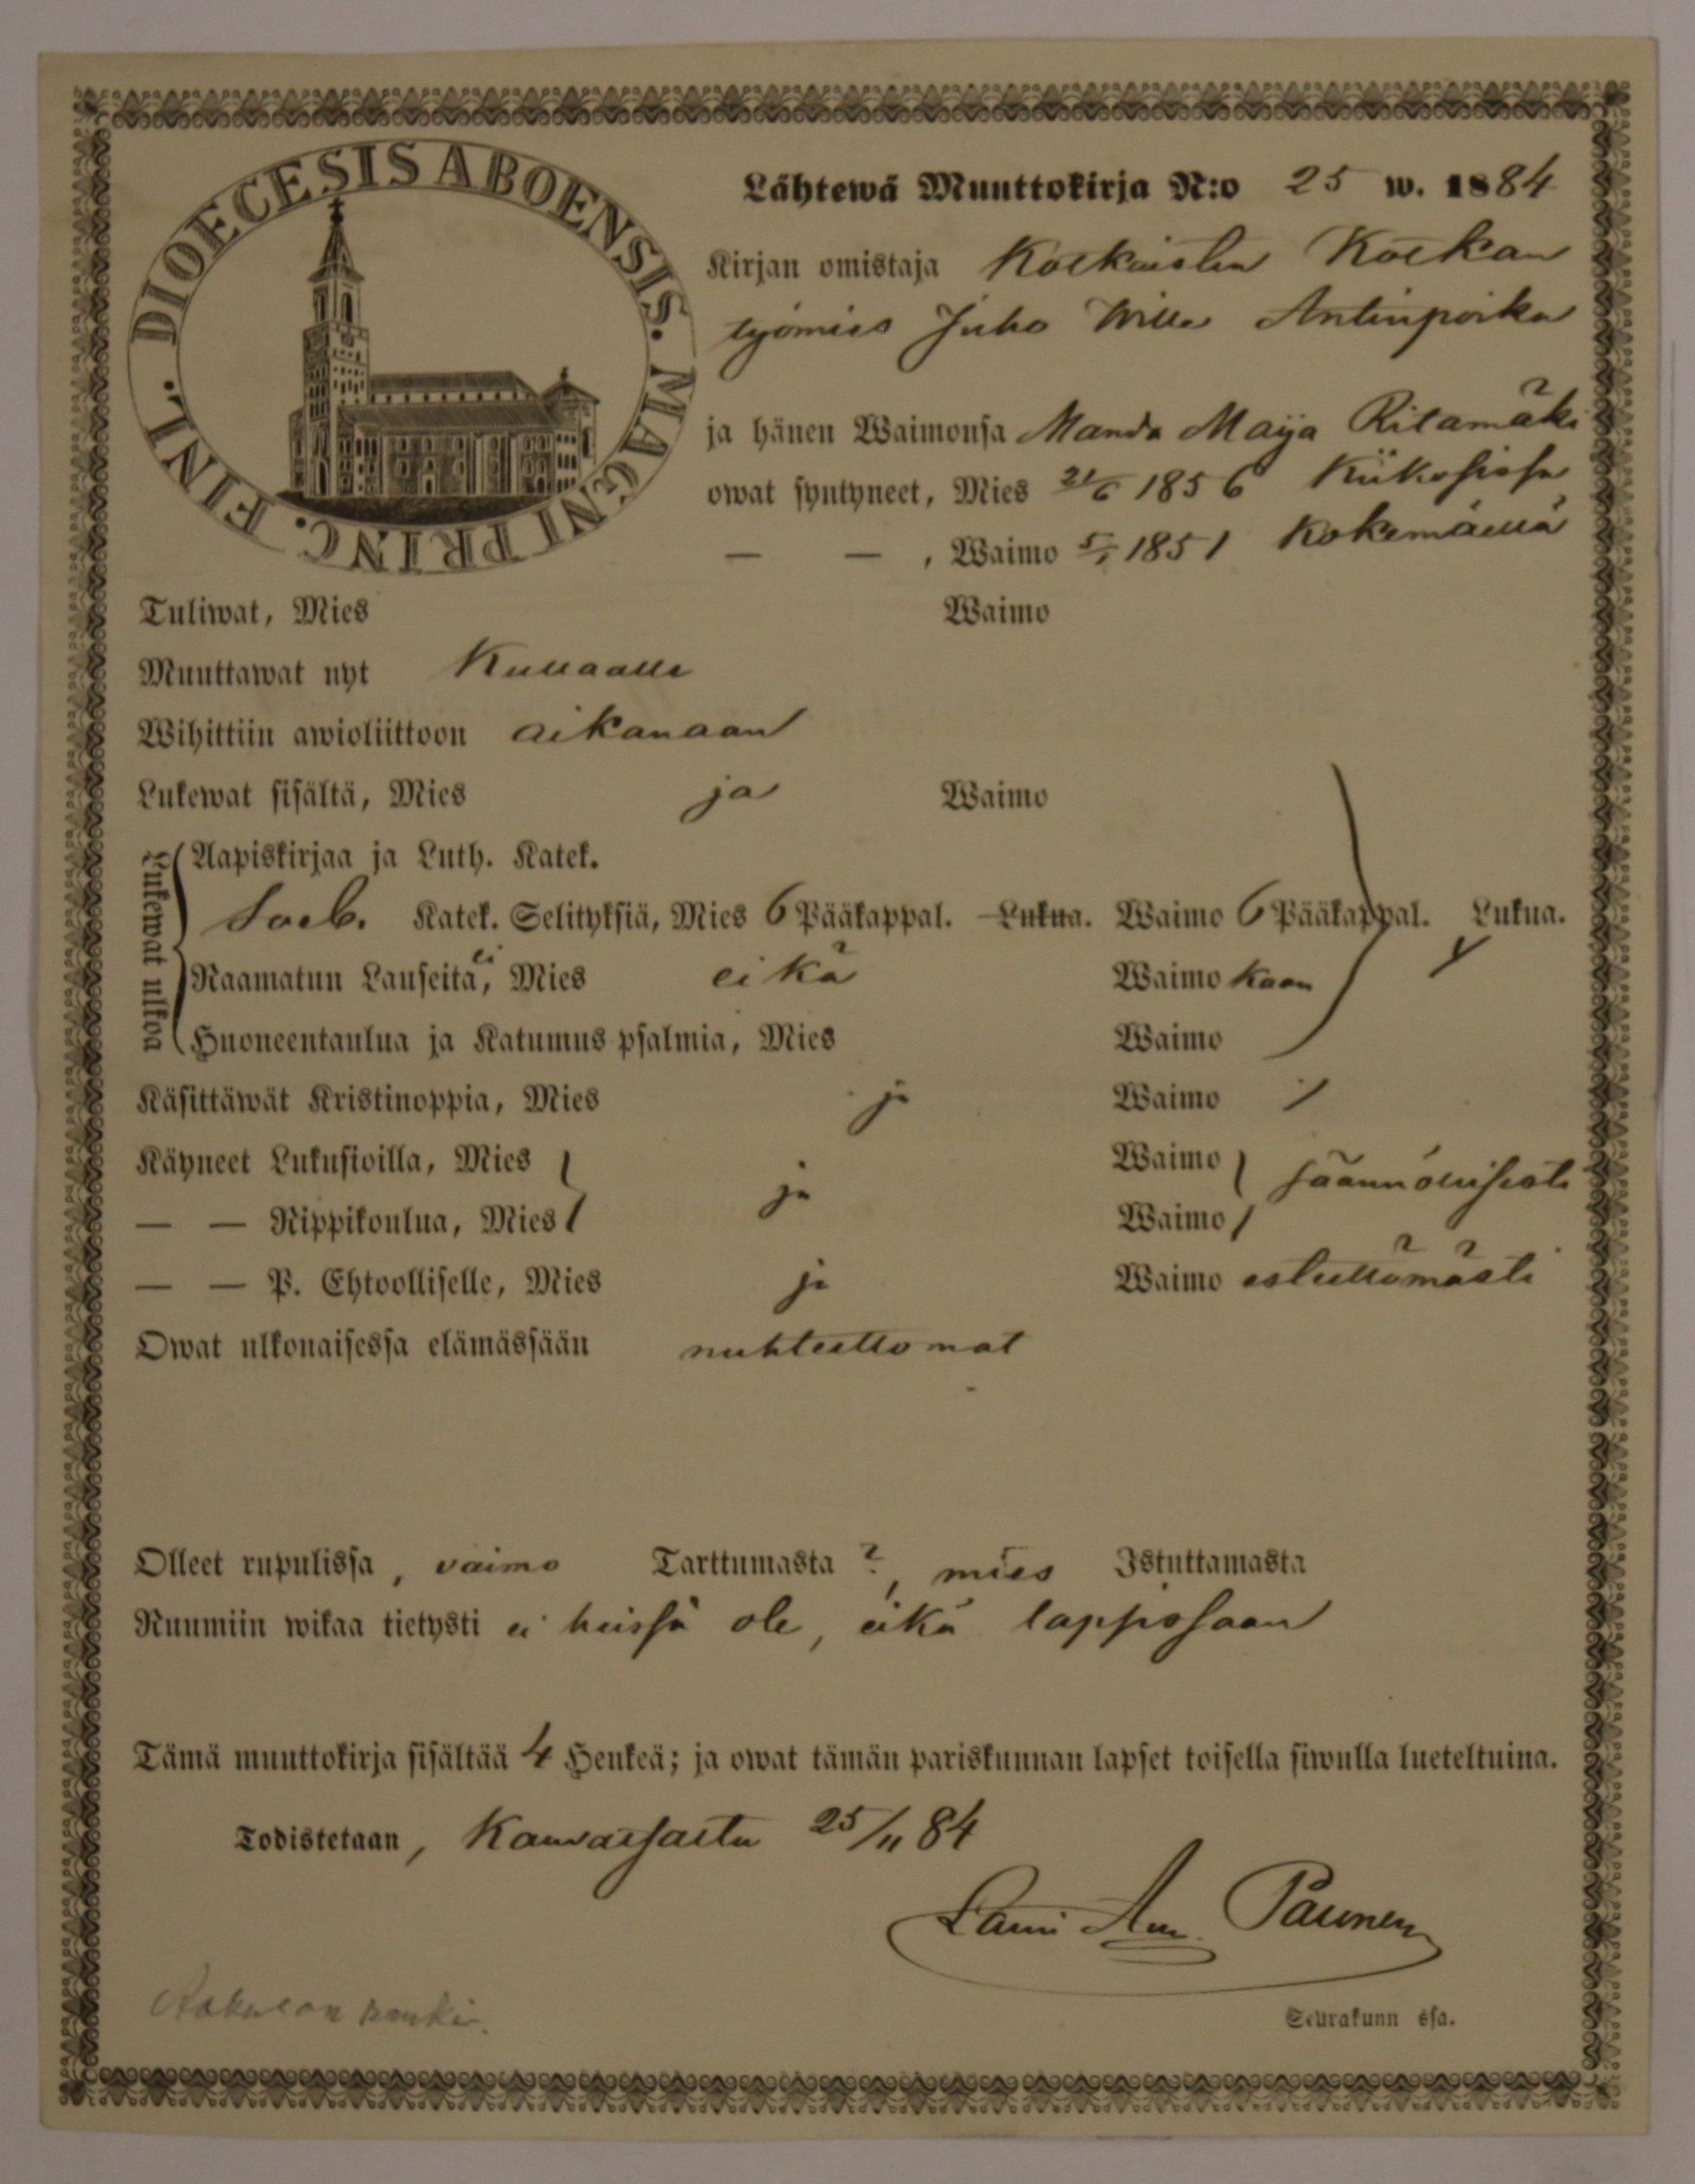 DIOECESIS ABOENSIS. MAGNI PRINC. FINL.
Lähtewä Muuttokirja N:o 25 w. 1884
Kirjan omistaja Koskuisten Koskan
työmies Juho Wille Antinpoika
ja hänen Waimonsa Manda Maija Ritamäki
owat syntyneet, Mies 21/6 1856 Kiikoisissa
— — , Waimo 5/5 1851 Kokemäellä
Tuliwat, Mies Waimo
Muuttawat nyt Kullaalle
Wihittiin awioliittoon aikanaan
Lukewat sisältä, Mies ja Waimo
Lukewat ulkoa
Aapiskirjaa ja Luth. Katek.
Katek. Selityksiä, Mies 6 Pääkappal. Lukua. Waimo 6 Pääkappal. Lukua.
Raamatun Lauseita, ei Mies eikä Waimo kaan
Huoneentaulua ja Katumus-psalmia, Mies Waimo
Käsittäwät Kristinoppia, Mies ja Waimo
Käyneet Lukusioilla, Mies ja Waimo säännöllisesti
— — Rippikoulua, Mies Waimo
— — P. Ehtoolliselle, Mies ja Waimo esteettömästi
Owat ulkonaisessa elämässään nuhteettomat
Olleet rupulissa, vaimo Tarttumasta, mies Istuttamasta
Ruumiin wikaa tietysti ei heissä ole, eikä lapsissaan
Tämä muuttokirja sisältää 4 Henkeä; ja owat tämän pariskunnan lapset toisella siwulla lueteltuina.
Todistetaan, Kauvatsasta 25/11 84
Lauri Aug. Paunen
Seurakunn ssa.